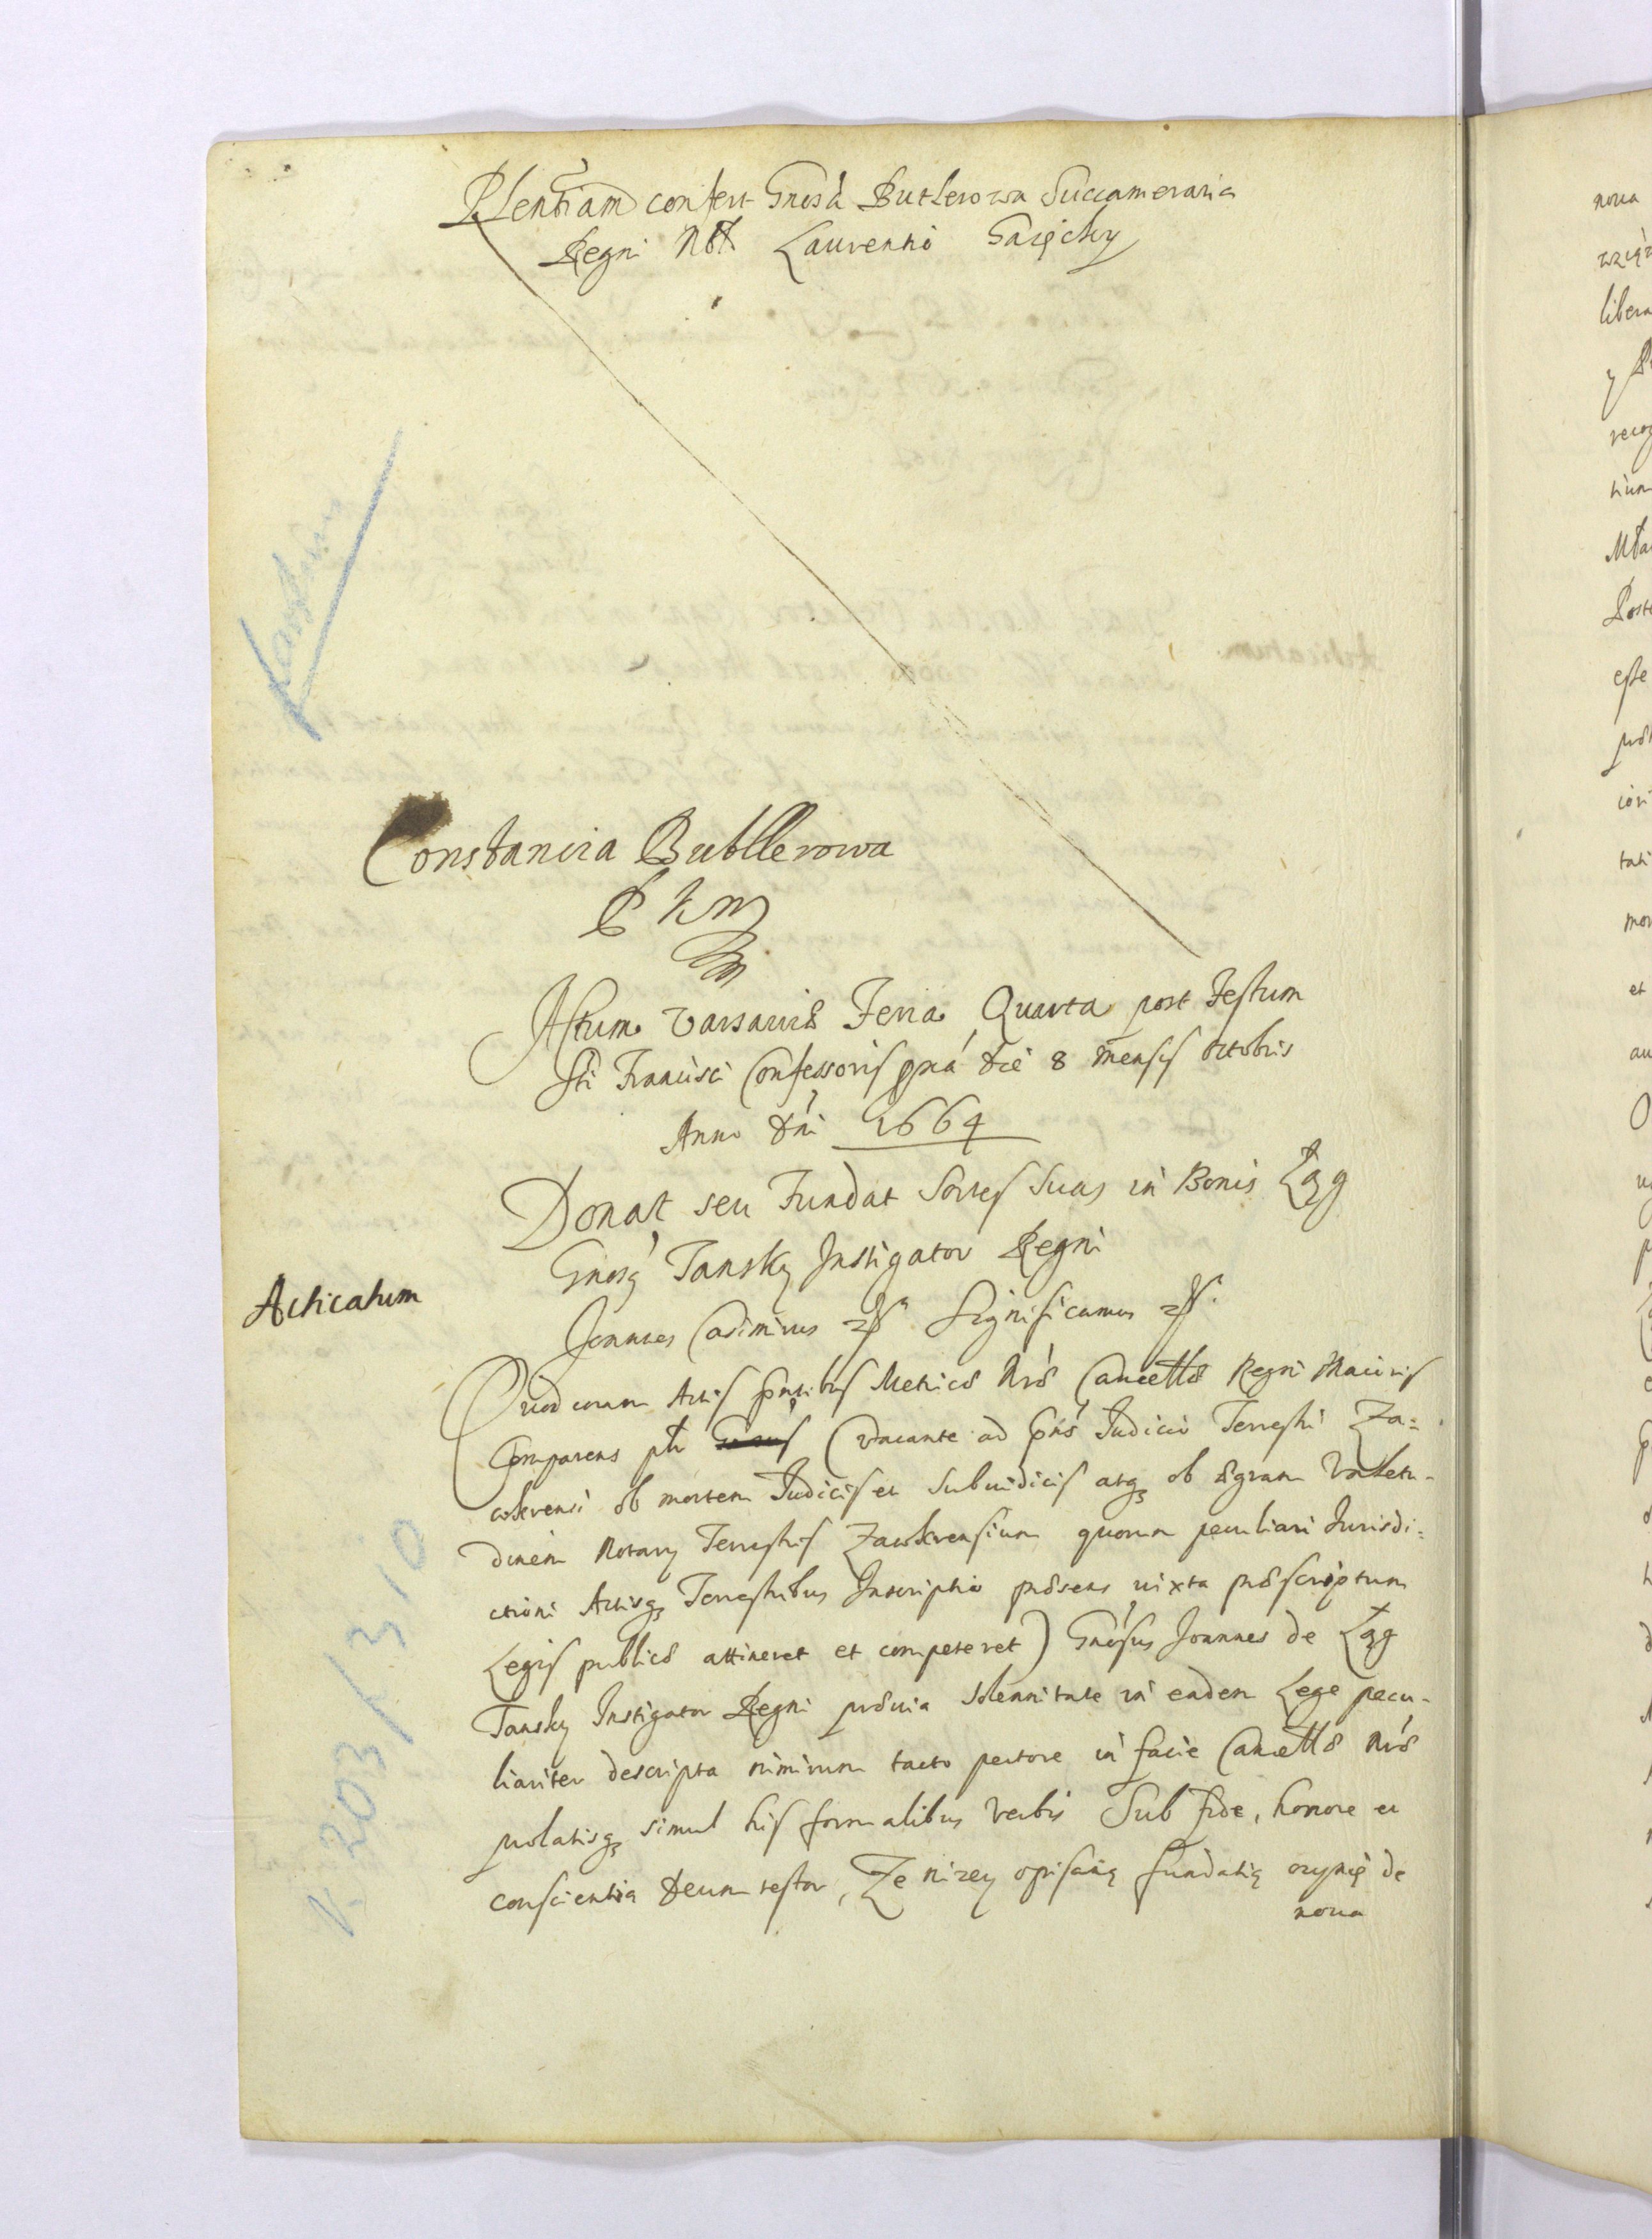 Plentiam confert Gnosa Butlerowa Succameraria
Regni Nbli Laurentio Gaięcky
Constancia Buttlerowa
P K M
Actum Varsaviæ Feria Quarta post Festum
Sti Francisci Confessoris pxa die 8 mensis octobris
Anno Dni 1664
Donat seu Fundat Sortes Suas in Bonis Łęg
Gnosg Tansky Instigator Regni
Acticatum
Joannes Casimirus Significamus
Quod coram Actis pntibus Metricæ Nræ Cancellæ Regni Maioris
Comparens ptr (vacante ad pns Judicio Terrestri Za=
wkrensi ob mortem Judicis et Subiudicis atq ob ægram Valetu-
dinem Notary Terrestris Zawkrensium quorum peculiari Jurisdi=
ctioni Actisq Terrestribus Inscriptio præsens iuxta præscriptum
Legis publicæ attineret et competeret) Gnosus Joannes de Łęg
Tansky Instigator Regni prævia solennitate in eadem Lege pecu-
liariter descripta nimirum tacto pectore in facie Cancellæ Nræ
prolatisq simul his formalibus verbis Sub fide, honore et
conscientia Deum testor, Że nizey opisaną fundatią czynię de
nova
V. 203/310